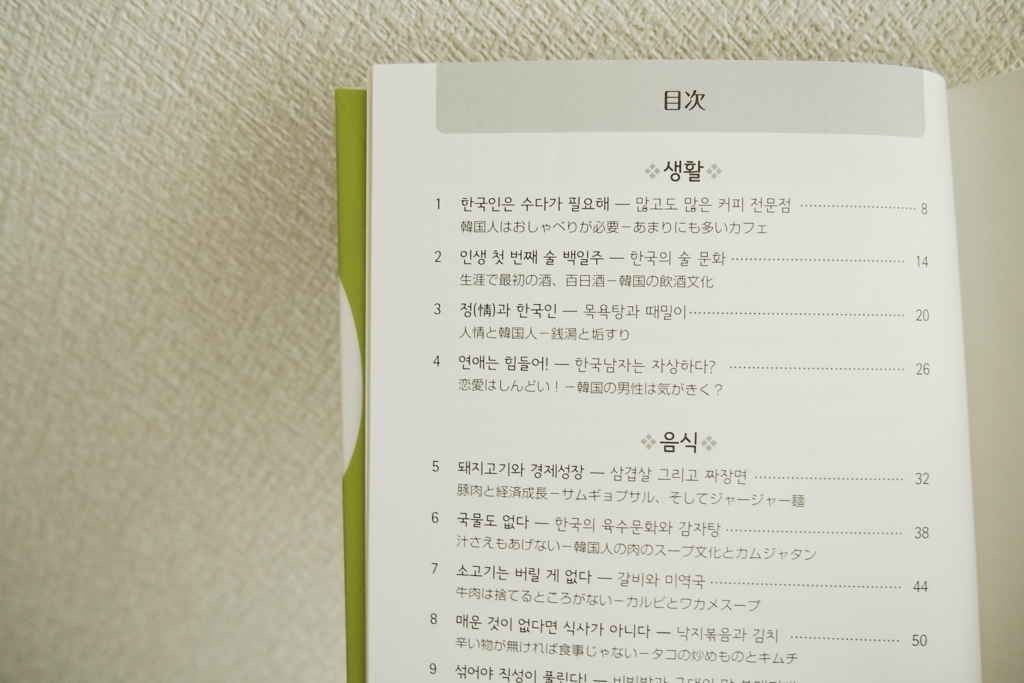 目次
❖생활❖
1 한국인은 수다가 필요해 — 많고도 많은 커피 전문점 ………… 8
韓国人はおしゃべりが必要－あまりにも多いカフェ
2 인생 첫 번째 술 백일주 — 한국의 술 문화 ………… 14
生涯で最初の酒、百日酒－韓国の飲酒文化
3 정(情)과 한국인 — 목욕탕과 때밀이 ………… 20
人情と韓国人－銭湯と垢すり
4 연애는 힘들어! — 한국남자는 자상하다? ………… 26
恋愛はしんどい！－韓国の男性は気がきく？
❖음식❖
5 돼지고기와 경제성장 — 삼겹살 그리고 짜장면 ………… 32
豚肉と経済成長－サムギョプサル、そしてジャージャー麺
6 국물도 없다 — 한국의 육수문화와 감자탕 ………… 38
汁さえもあげない－韓国人の肉のスープ文化とカムジャタン
7 소고기는 버릴 게 없다 — 갈비와 미역국 ………… 44
牛肉は捨てるところがない－カルビとワカメスープ
8 매운 것이 없다면 식사가 아니다 — 낙지볶음과 김치 ………… 50
辛い物が無ければ食事じゃない－タコの炒めものとキムチ
9 섞어야 직성이 풀린다! — 비빔밥과